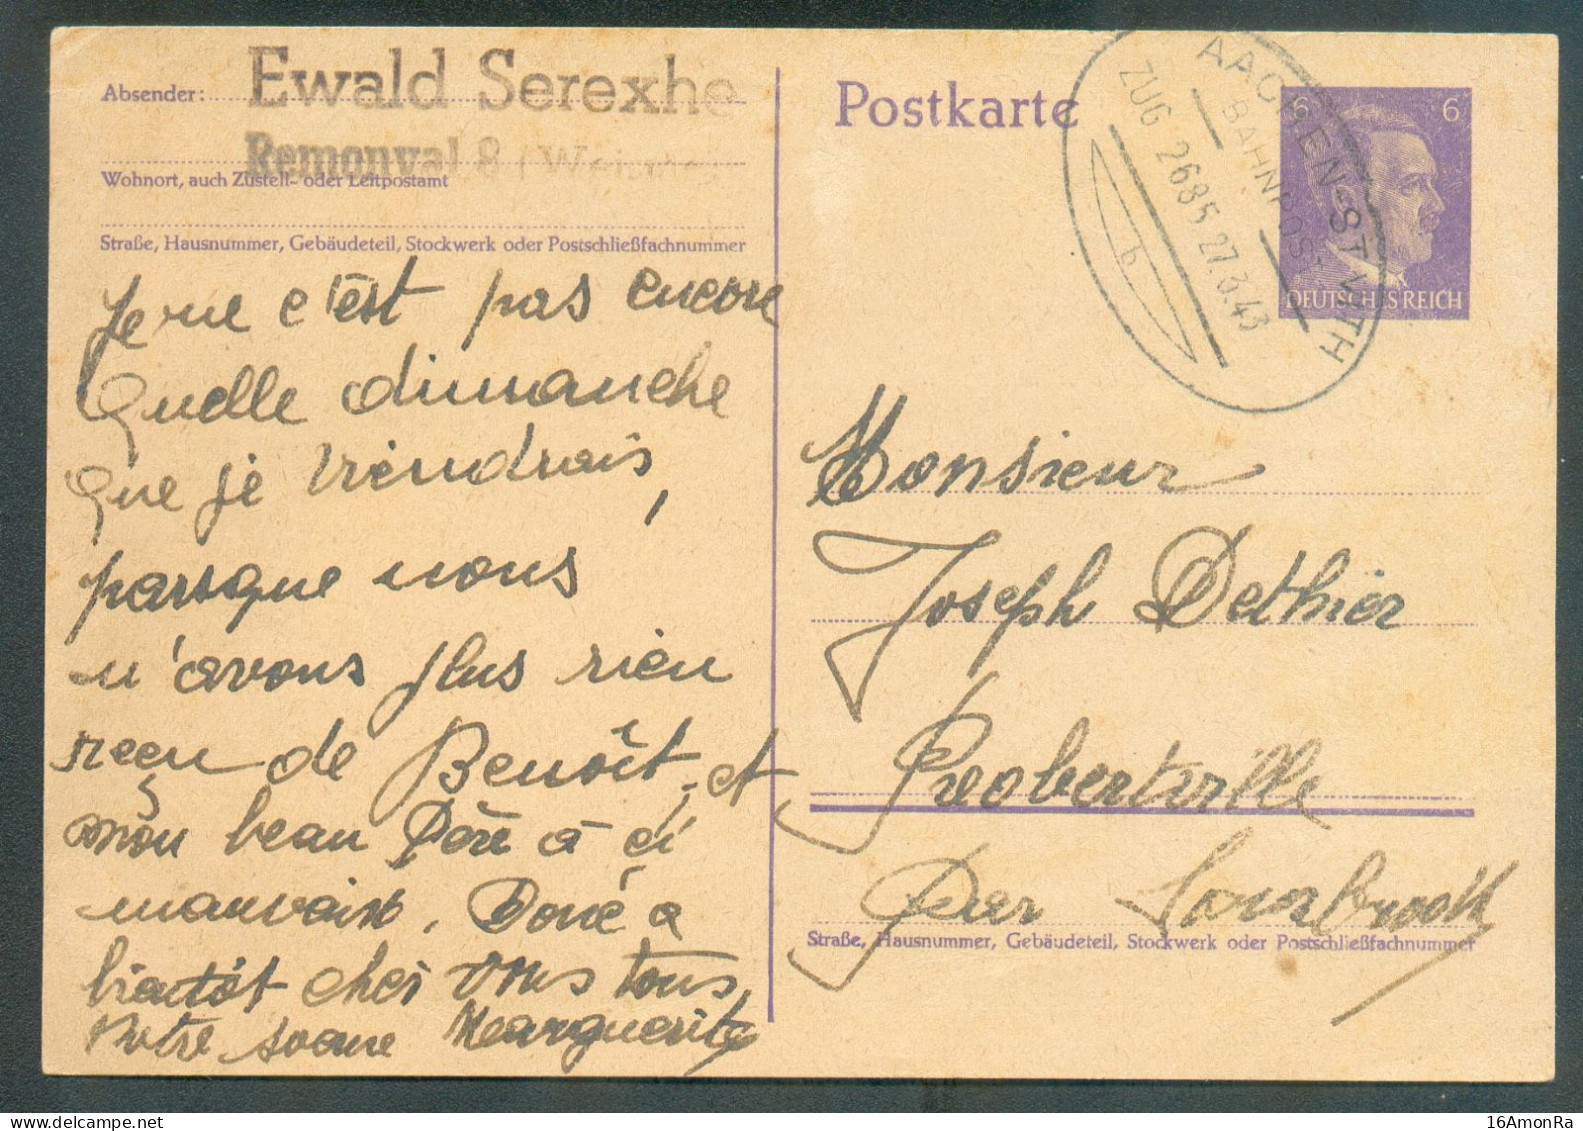 Absender: Ewald Serexhe
Remonval 8
Wohnort, auch Zustell- oder Leitpostamt
Straße, Hausnummer, Gebäudeteil, Stockwerk oder Postschließfachnummer
Je ne c'est pas encore
Quelle dimanche
que je viendrais,
parsque nous
n'avons plus rien
reçu de Benoît, et
mon beau Père à ci
mauvais. Donc a
bientôt chez vous tous,
Votre soeur Marguerite
Postkarte
AACHEN-ST. VITH
BAHNPOST
ZUG 2685 27.3.43
b
6 6
DEUTSCHES REICH
Monsieur
Joseph Dethier
Robertville
Per Sourbrodt
Straße, Hausnummer, Gebäudeteil, Stockwerk oder Postschließfachnummer
16AmonRa